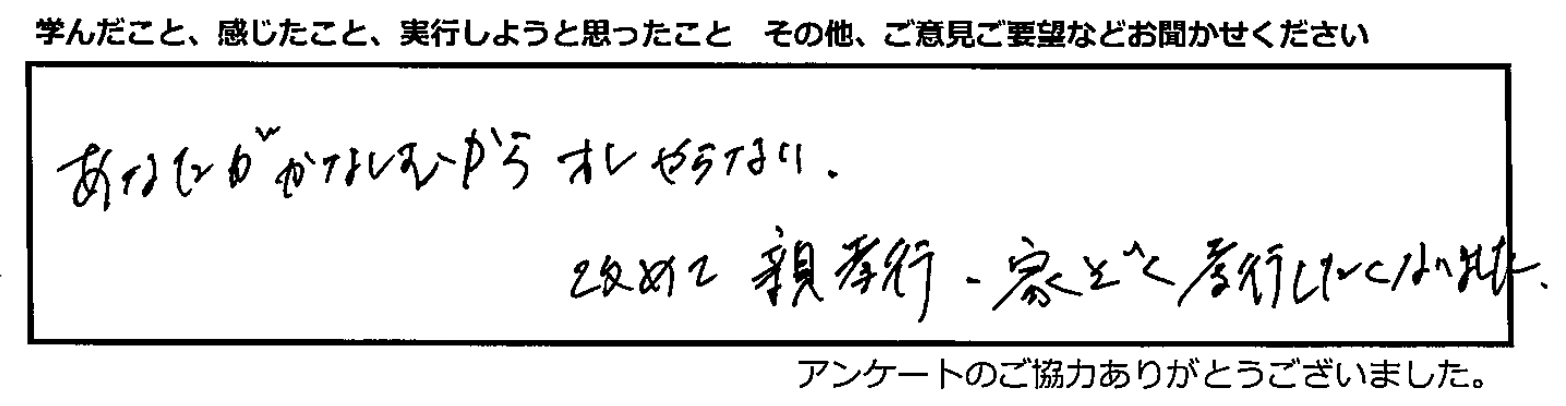 学んだこと、感じたこと、実行しようと思ったこと　その他、ご意見ご要望などお聞かせください
あなたがかなしむからオレやらない.
改めて 親孝行、家ぞく孝行したくなりました.
アンケートのご協力ありがとうございました。